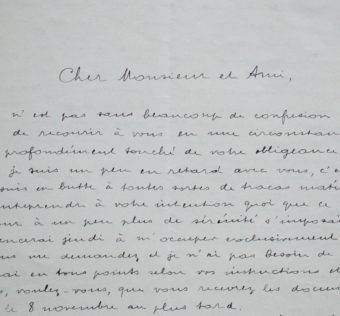 Cher Monsieur et Ami,
n'est pas sans beaucoup de confusion
de recourir à vous en une circonstan
profondément touché de votre obligeance
je suis un peu en retard avec vous, c'e
suis en butte à toutes sortes de tracas mati
entreprendre à votre intention quoi que ce
our à un peu plus de sérénité s'imposai
encerai jeudi à m'occuper exclusivement
ous me demandez et je n'ai pas besoin de
rai en tous points selon vos instructions et
s, voulez-vous, que vous recevrez les docum
le 8 novembre au plus tard.